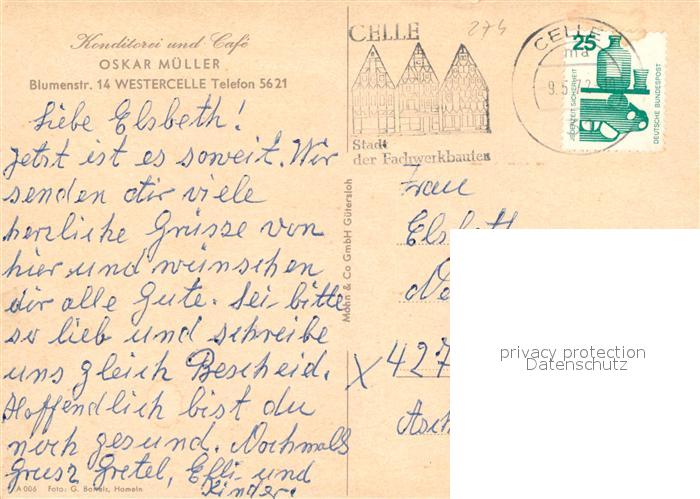 Konditorei und Café
OSKAR MÜLLER
Blumenstr. 14 WESTERCELLE Telefon 5621
Liebe Elsbeth!
jetzt ist es soweit. Wir
senden dir viele
herzliche Grüsse von
hier und wünschen
dir alle Gute. Sei bitte
so lieb und schreibe
uns gleich Bescheid.
Hoffendlich bist du
noch gesund. Nochmals
Grusz Gretel, Effi und
Kinder.
A 006 Foto: G. Bartels, Hameln
Mohn & Co GmbH Gütersloh
CELLE
274
Stadt
der Fachwerkbauten
CELLE
25
JEDERZEIT SICHERHEIT
DEUTSCHE BUNDESPOST
Frau
Elsbeth
X 427
privacy protection
Datenschutz